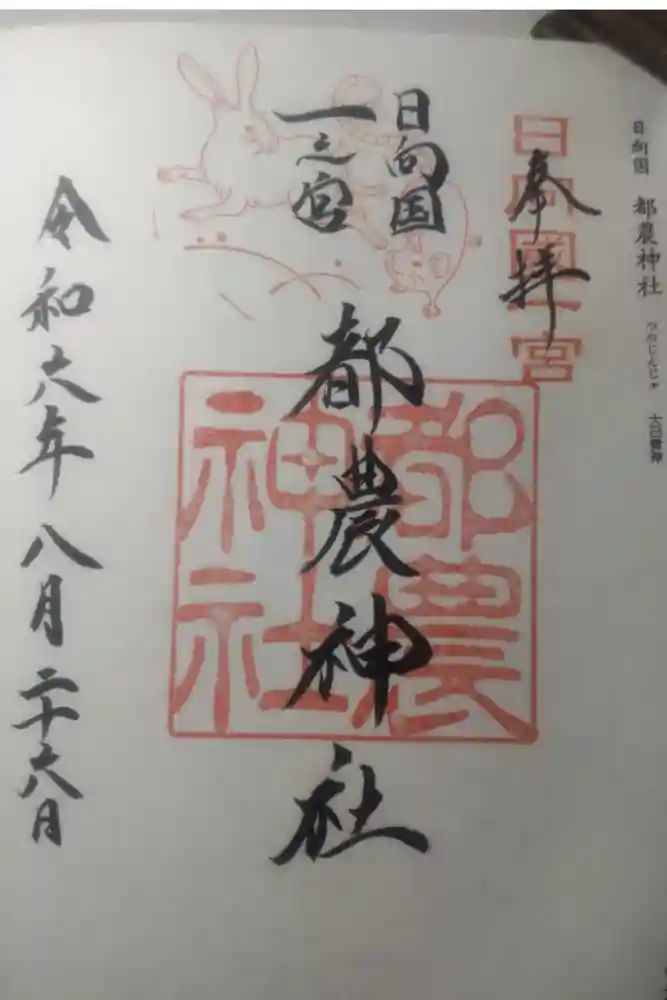 日向国 都農神社 つのじんじゃ 大己貴神
日向國一宮
奉拝
日向国
一之宮
都農神社
都農
神社
令和六年八月二十六日